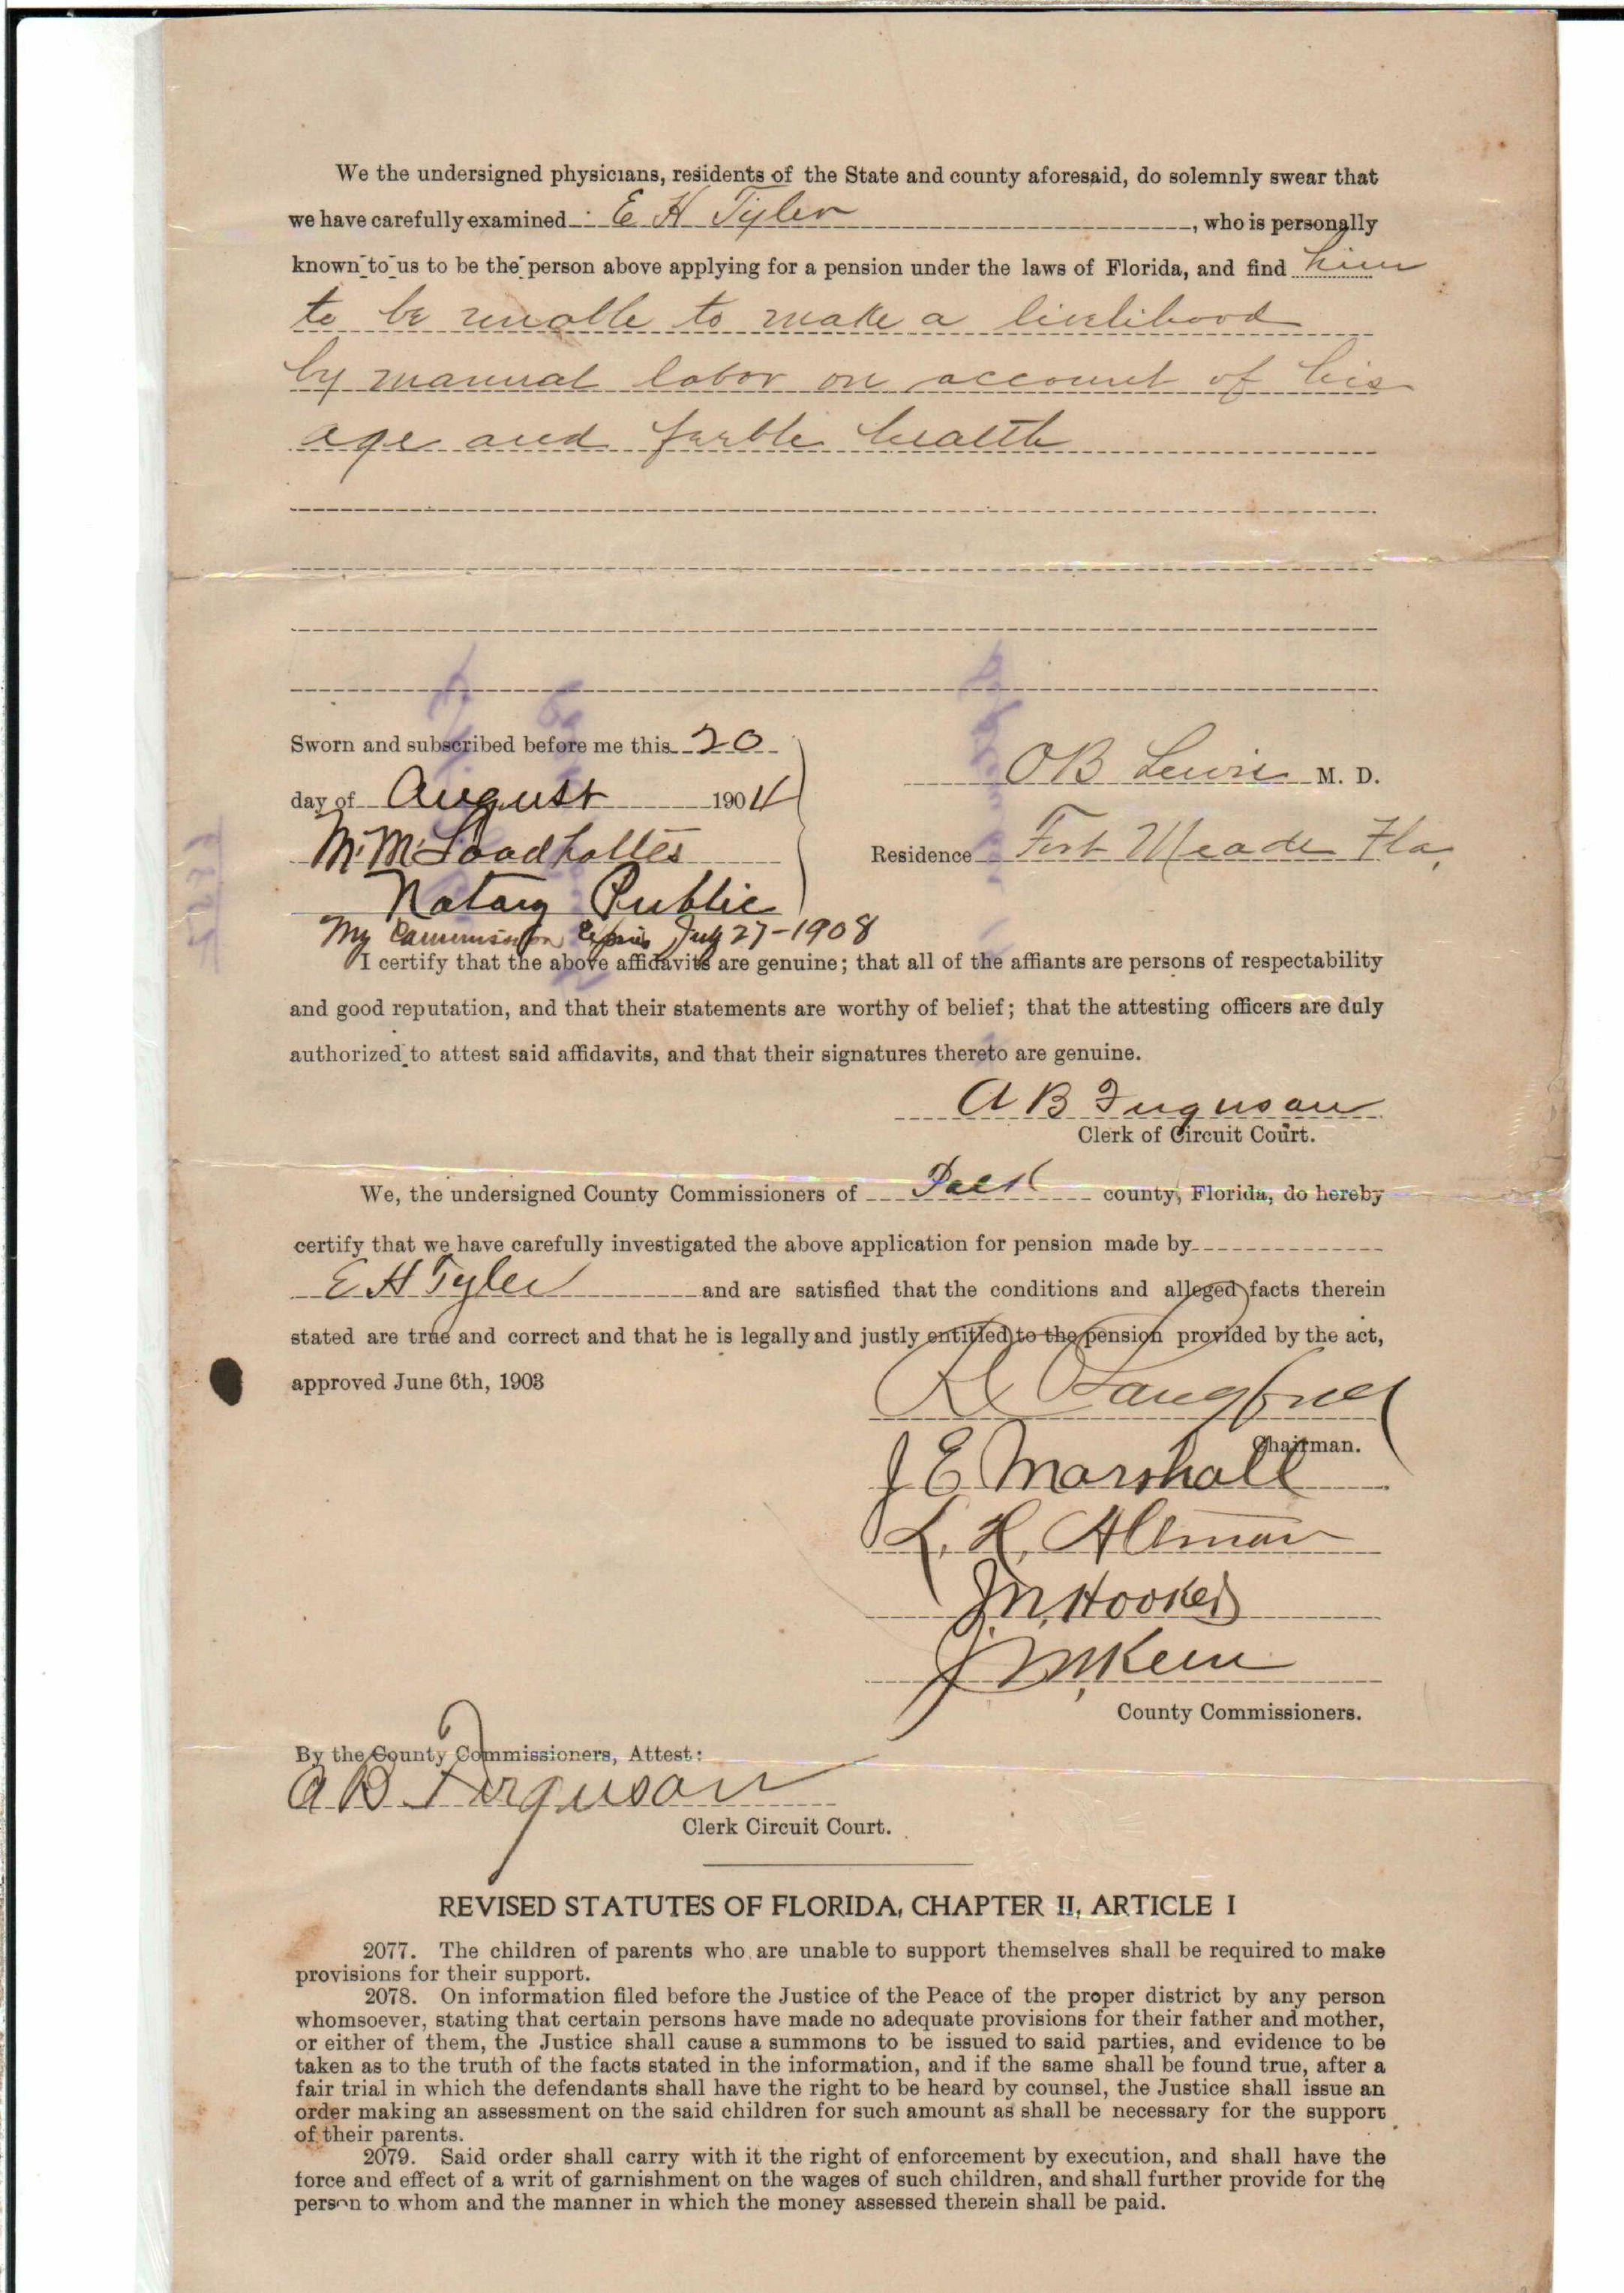 We the undersigned physicians, residents of the State and county aforesaid, do solemnly swear that
we have carefully examined E H Tyler, who is personally
known to us to be the person above applying for a pension under the laws of Florida, and find him
to be unable to make a livelihood
by manual labor on account of his
age and feeble health
Sworn and subscribed before me this 20
day of August 1904
M. M. Loadholtes
Notary Public
My Commission Expires July 27-1908
O B Lewis M. D.
Residence Fort Meade Fla,
I certify that the above affidavits are genuine; that all of the affiants are persons of respectability
and good reputation, and that their statements are worthy of belief; that the attesting officers are duly
authorized to attest said affidavits, and that their signatures thereto are genuine.
A B Ferguson
Clerk of Circuit Court.
We, the undersigned County Commissioners of Polk county, Florida, do hereby
certify that we have carefully investigated the above application for pension made by
E H Tyler and are satisfied that the conditions and alleged facts therein
stated are true and correct and that he is legally and justly entitled to the pension provided by the act,
approved June 6th, 1903
Langford
Chairman.
J E Marshall
L. H. Altman
J. N. Hooker
J M Keen
County Commissioners.
By the County Commissioners, Attest:
A B Ferguson
Clerk Circuit Court.
REVISED STATUTES OF FLORIDA, CHAPTER II, ARTICLE I
2077. The children of parents who are unable to support themselves shall be required to make
provisions for their support.
2078. On information filed before the Justice of the Peace of the proper district by any person
whomsoever, stating that certain persons have made no adequate provisions for their father and mother,
or either of them, the Justice shall cause a summons to be issued to said parties, and evidence to be
taken as to the truth of the facts stated in the information, and if the same shall be found true, after a
fair trial in which the defendants shall have the right to be heard by counsel, the Justice shall issue an
order making an assessment on the said children for such amount as shall be necessary for the support
of their parents.
2079. Said order shall carry with it the right of enforcement by execution, and shall have the
force and effect of a writ of garnishment on the wages of such children, and shall further provide for the
person to whom and the manner in which the money assessed therein shall be paid.